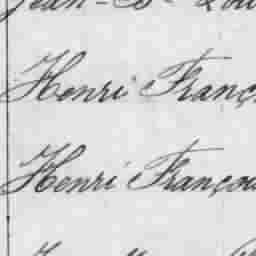 Jean-Bte Lou
Henri Franç
Henri Françoi